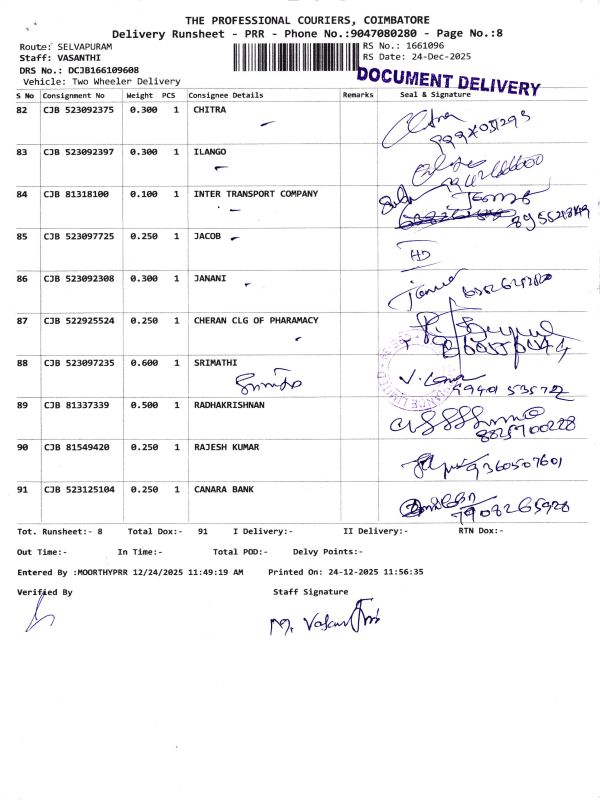 THE PROFESSIONAL COURIERS, COIMBATORE
Delivery Runsheet - PRR - Phone No.:9047080280 - Page No.:8
Route: SELVAPURAM
RS No.: 1661096
Staff: VASANTHI
RS Date: 24-Dec-2025
DRS No.: DCJB166109608
Vehicle: Two Wheeler Delivery
DOCUMENT DELIVERY
S No Consignment No Weight PCS Consignee Details Remarks Seal & Signature
82 CJB 523092375 0.300 1 CHITRA
83 CJB 523092397 0.300 1 ILANGO
84 CJB 81318100 0.100 1 INTER TRANSPORT COMPANY
85 CJB 523097725 0.250 1 JACOB
HD
86 CJB 523092308 0.300 1 JANANI
87 CJB 522925524 0.250 1 CHERAN CLG OF PHARAMACY
88 CJB 523097235 0.600 1 SRIMATHI
89 CJB 81337339 0.500 1 RADHAKRISHNAN
8825700228
90 CJB 81549420 0.250 1 RAJESH KUMAR
9360507601
91 CJB 523125104 0.250 1 CANARA BANK
7908265928
Tot. Runsheet:- 8 Total Dox:- 91 I Delivery:- II Delivery:- RTN Dox:-
Out Time:- In Time:- Total POD:- Delvy Points:-
Entered By :MOORTHYPRR 12/24/2025 11:49:19 AM Printed On: 24-12-2025 11:56:35
Verified By Staff Signature